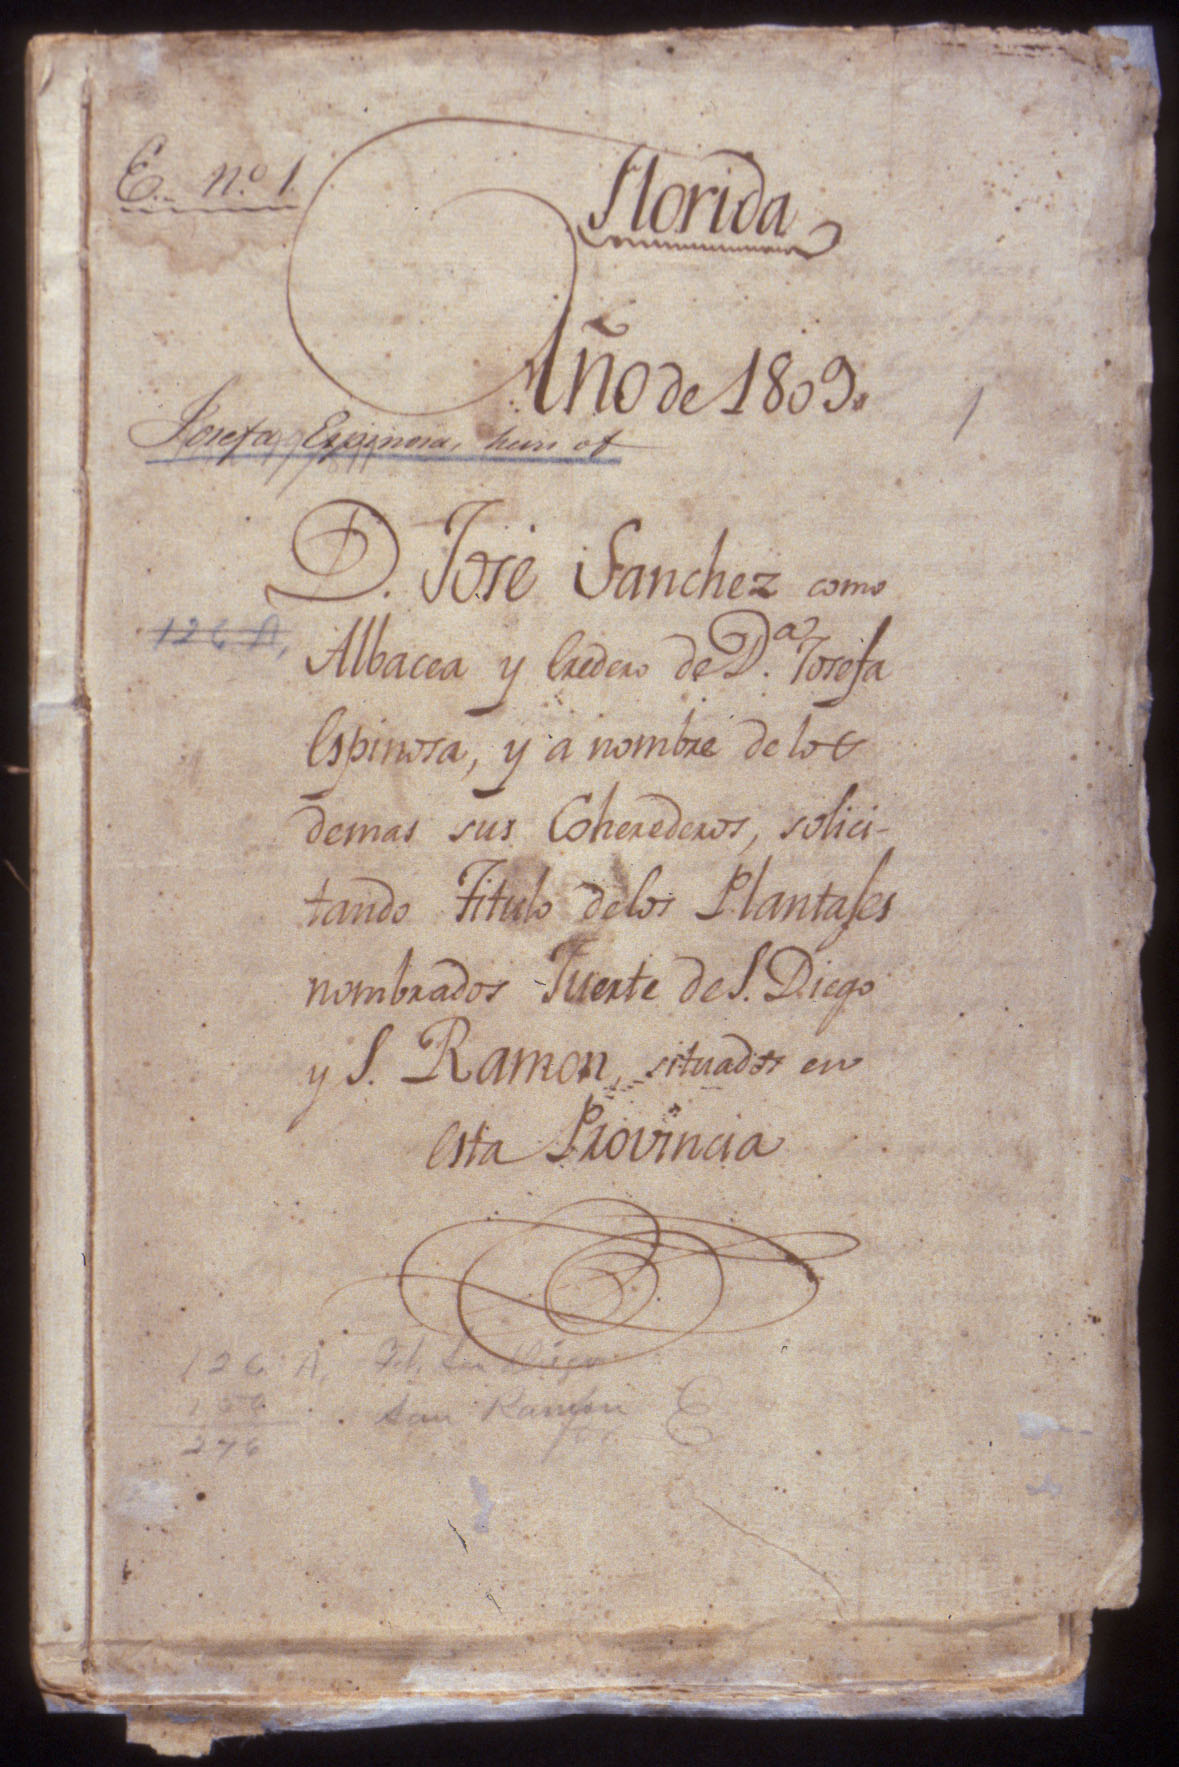 E. n.º 1.
Florida
Año de 1809.
1
Josefa Espinosa, heirs of
D. Jose Sanchez como
126 A,
Albacea y Eredero de D.ª Josefa
Espinosa, y a nombre de los
demas sus Coherederos, solici-
tando Titulo de los Plantajes
nombrados Fuerte de S. Diego
y S. Ramon, situados en
esta Provincia
126 A, San Diego
San Ramon E
276